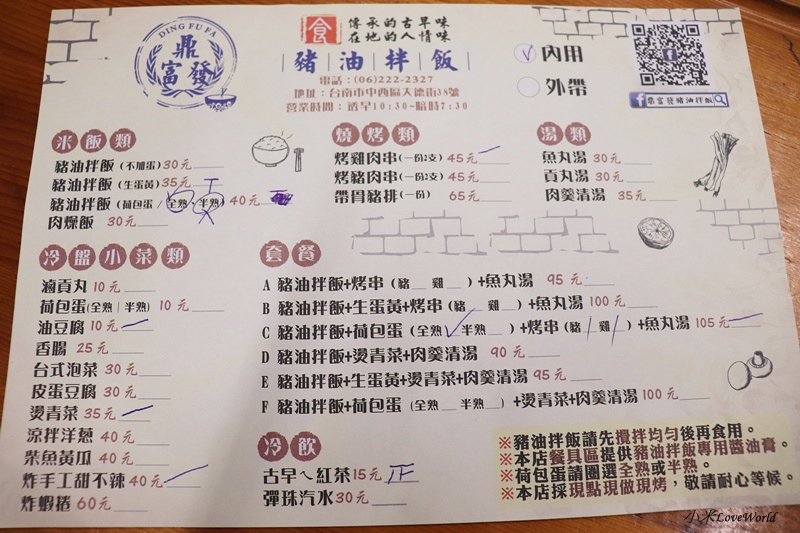 DING FU FA
鼎
富 發
食
傳承的古早味
在地的人情味
豬|油|拌|飯
電話:(06)222-2327
地址:台南市中西區天德街38號
營業時間:透早10:30-暗時7:30
✓ 內用
外帶
f 鼎富發豬油拌飯
米飯類
豬油拌飯(不加蛋)30元
豬油拌飯(生蛋黃)35元
豬油拌飯(荷包蛋/全熟、半熟)40元
肉燥飯 30元
燒烤類
烤雞肉串(一份2支) 45元
烤豬肉串(一份2支) 45元
帶骨豬排(一份) 65元
湯類
魚丸湯 30元
貢丸湯 30元
肉羹清湯 35元
冷盤小菜類
滷貢丸 10元
荷包蛋(全熟|半熟) 10元
油豆腐 10元
香腸 25元
台式泡菜 30元
皮蛋豆腐 30元
燙青菜 35元
涼拌洋蔥 40元
柴魚黃瓜 40元
炸手工甜不辣 40元
炸蝦捲 60元
套餐
A 豬油拌飯+烤串(豬__雞__)+魚丸湯 95元
B 豬油拌飯+生蛋黃+烤串(豬__雞__)+魚丸湯 100元
C 豬油拌飯+荷包蛋(全熟__半熟__)+烤串(豬__雞__)+魚丸湯 105元
D 豬油拌飯+燙青菜+肉羹清湯 90元
E 豬油拌飯+生蛋黃+燙青菜+肉羹清湯 95元
F 豬油拌飯+荷包蛋(全熟__半熟__)+燙青菜+肉羹清湯 100元
冷飲
古早ㄟ紅茶15元
彈珠汽水30元
※豬油拌飯請先攪拌均勻後再食用。
※本店餐具區提供豬油拌飯專用醬油膏。
※荷包蛋請圈選全熟或半熟。
※本店採現點現做現烤,敬請耐心等候。
小米LoveWorld